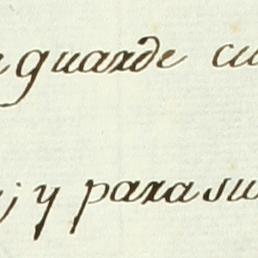 guarde
; y para su